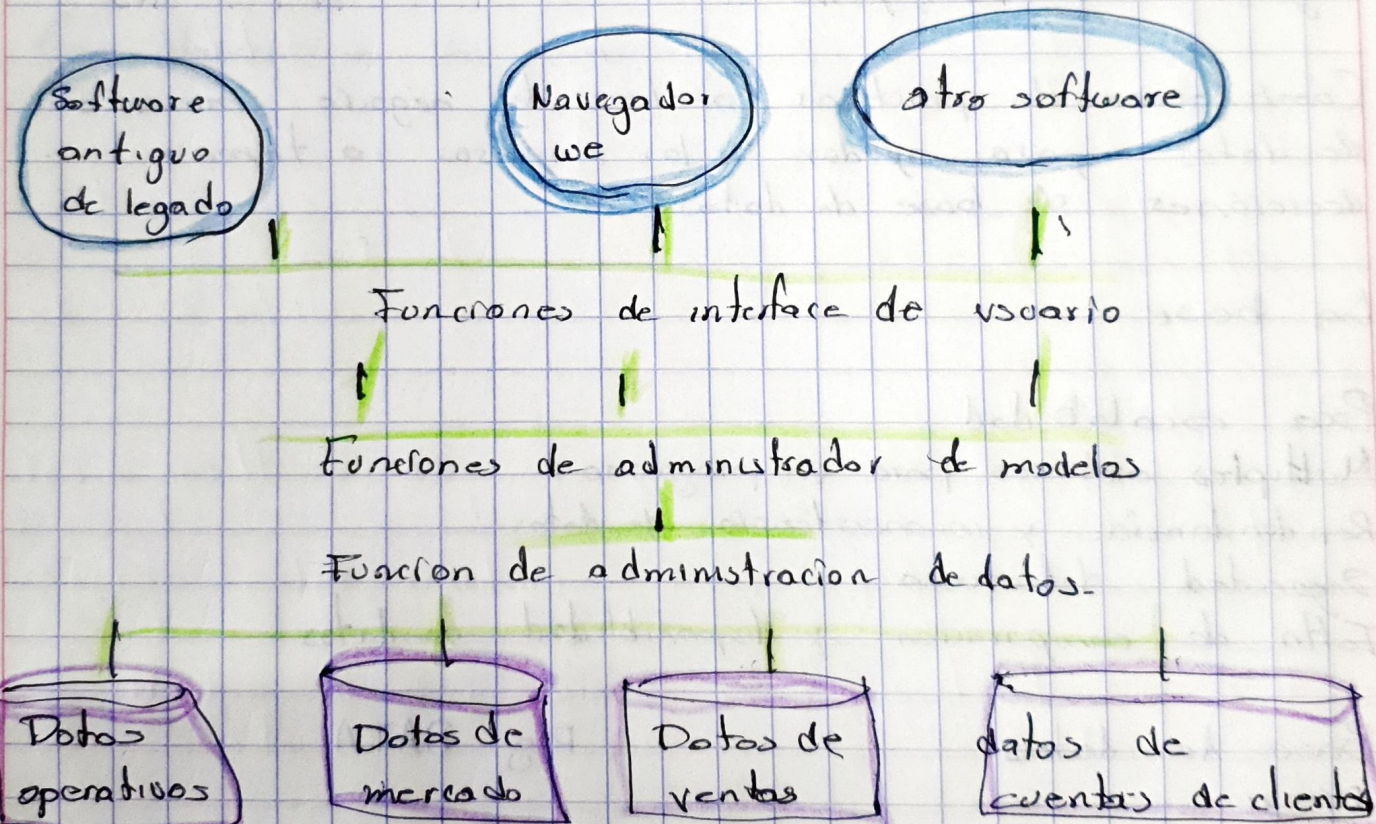 Software
antiguo
de legado
Navegador
we
otro software
Funciones de interface de usuario
Funciones de administrador de modelos
Funcion de administracion de datos.
Datos
operativos
Datos de
mercado
Datos de
ventas
datos de
cuentas de clientes